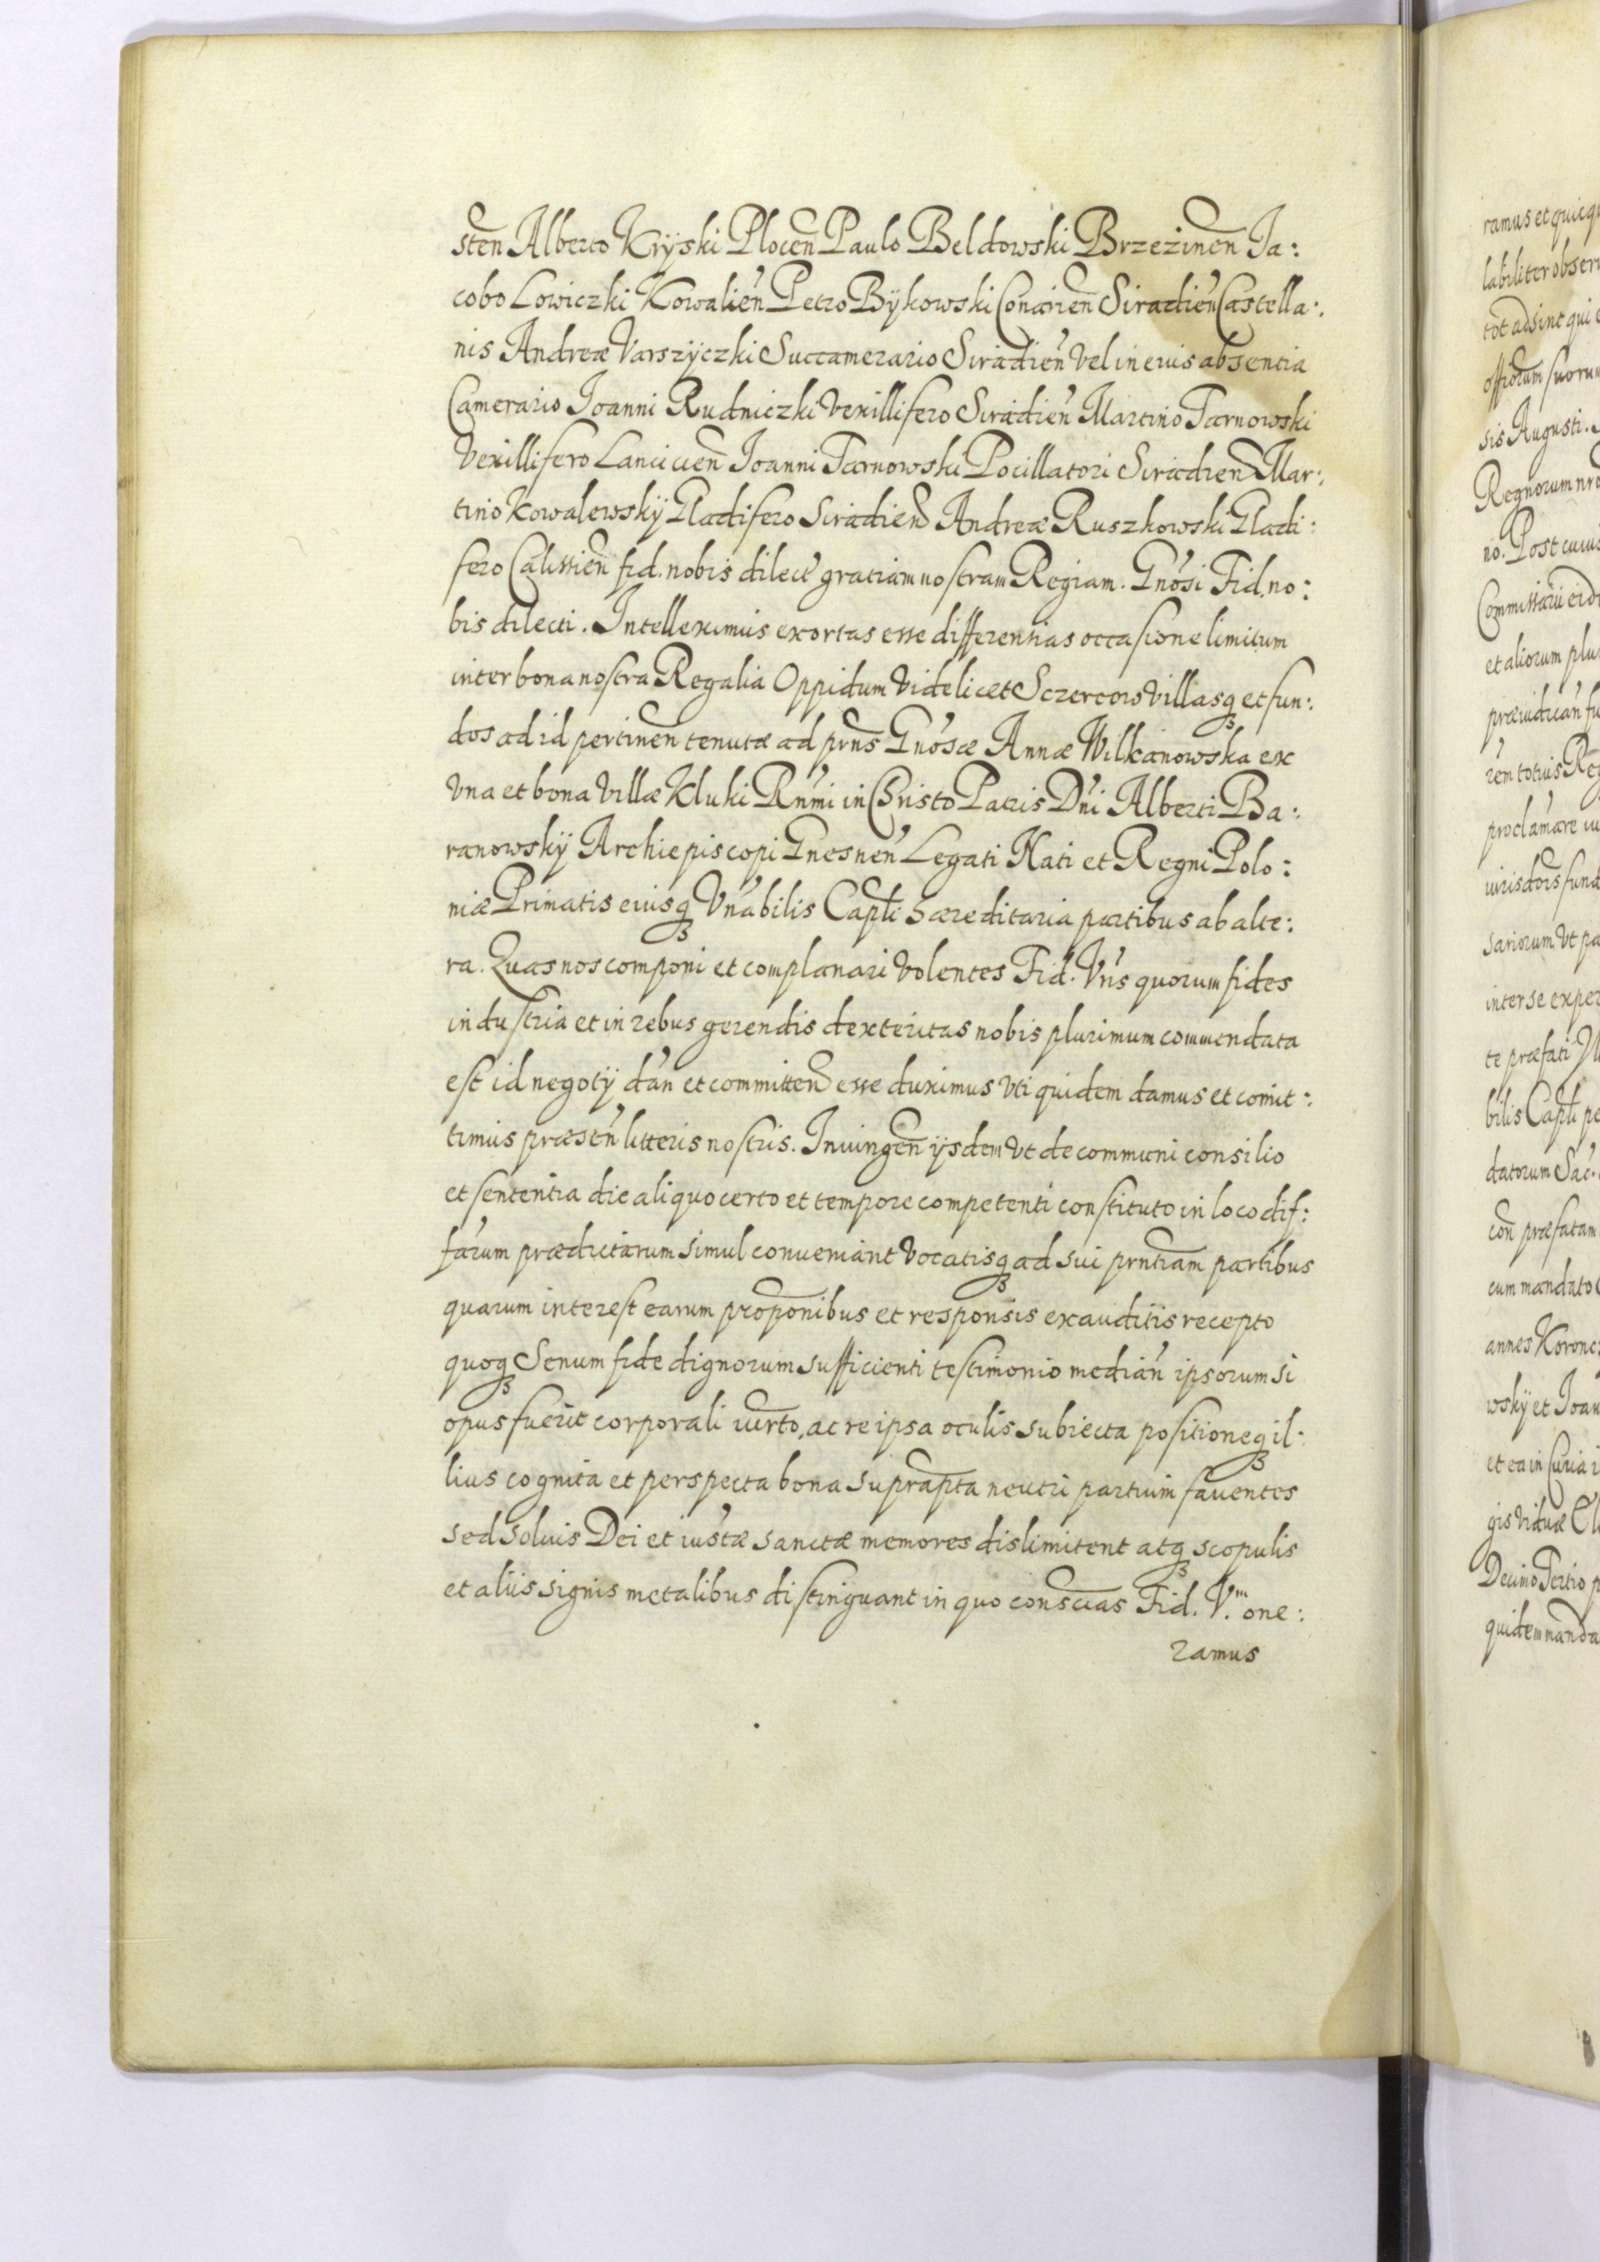 sten Alberto Kryski Plocen Paulo Beldowski Brzezinen Ja:
cobo Lowiczki Kowalien Petro Bÿkowski Conarien Siradien Castella:
nis Andreæ Varszÿczki Succamerario Siradien Vel in eius absentia
Camerario Ioanni Rudniczki Vexillifero Siradien Martino Tarnowski
Vexillifero Lancicien Ioanni Tarnowski Pocillatori Siradien Mar:
tino Kowalewskÿ Gladifero Siradien Andreæ Ruszkowski Gladi:
fero Calissien fid. nobis dilect gratiam nostram Regiam. Gnosi Fid. no:
bis dilecti. Intelleximus exortas esse differentias occasione limitum
inter bona nostra Regalia Oppidum Videlicet Sczercow Villasq et fun:
dos ad id pertinen tenutæ ad prns Gnosæ Annæ Wilkanowska ex
Vna et bona Villæ Kluki Rnmi in Christo Patris Dni Alberti Ba:
ranowskÿ Archiepiscopi Gnesnen Legati Nati et Regni Polo:
niæ Primatis eiusq Vnabilis Capli hæreditaria partibus ab alte:
ra. Quas nos componi et complanari Volentes Fid. Vris quorum fides
industria et in rebus gerendis dexteritas nobis plurimum commendata
est id negotÿ dan et committen esse duximus Vti quidem damus et comit:
timus præsen litteris nostris. Iniungen ÿsdem Vt de communi consilio
et sententia die aliquo certo et tempore competenti constituto in loco dif:
farum prædictarum simul conveniant Vocatisq ad sui prntiam partibus
quarum interest earum proponibus et responsis exauditis recepto
quoq Senum fide dignorum sufficienti testimonio median ipsorum si
opus fuerit corporali iurto, ac re ipsa oculis subiecta positioneq il:
lius cognita et perspecta bona suprapta neutri partium faventes
sed solius Dei et iustæ sanctæ memores dislimitent atq scopulis
et aliis signis metalibus distinguant in quo conscias Fid. V.m one:
ramus
ramus et quicqu
labiliter observ
tot adsint qui e
sis Augusti.
Regnorum nro
no. Post cuius
et aliorum plu
proclamare
inter se exper
te præfati
bilis Capli pe
datorum Sac.
con præfatam
cum mandato
annes Koron
wskÿ et Ioan
et ea in Curia
gis Viduæ El
Decimo Tertio p
quidem manda